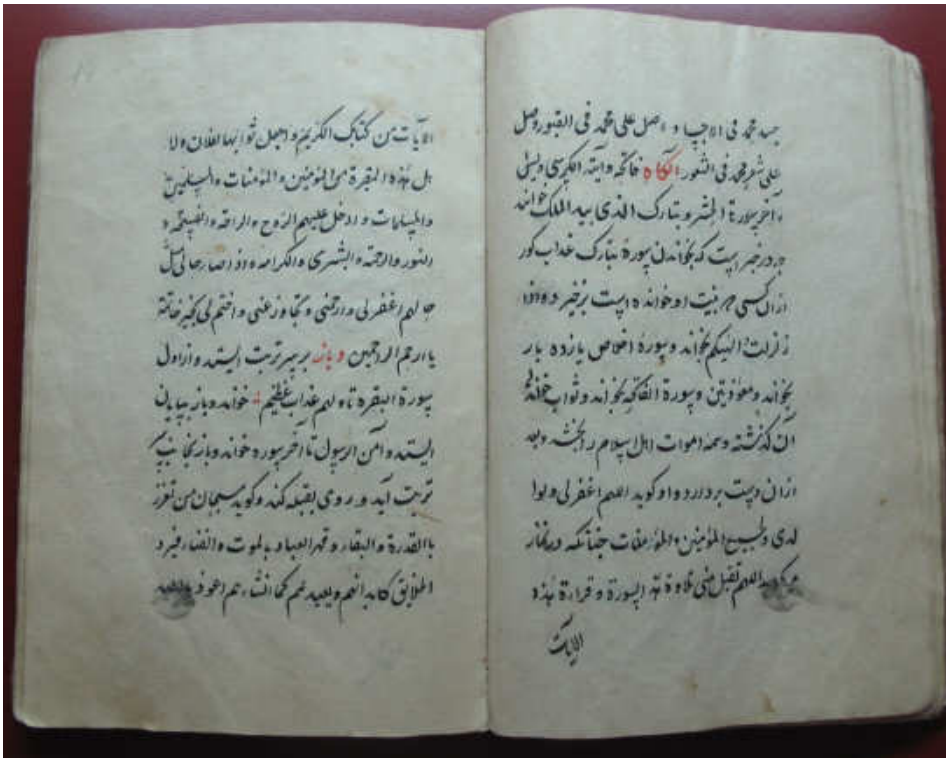 جسد محمد فی الاجساد و صل علی محمد فی القبور وصل
علی شعر محمد فی الشعور آنکاه فاتحه وایته الکرسی ویس
و آخر سورة الحشر و تبارک الذی بیده الملک خواند
و در خبر است که بخواندن سورة تبارک عذاب کور
ازان کسی بر نیت او خوانده است برخیزد و اذا
زلزلت و الهیکم بخواند و سورة اخلاص یازده بار
بخواند و معوذتین و سورة الفاتحه بخواند و ثواب
آن کذشته و همه اموات اهل اسلام را بخشد وبعد
ازان دست بردارد واو کوید اللهم اغفر لی ولوا
لدی ولجمیع المؤمنین والمؤمنات چنانکه در نماز
میکوید اللهم تقبل منی تلاوة هذه السورة و قراءة هذه
الایات
الایات من کتابک الکریم واجعل ثوابها لفلان ولا
هل هذه البقرة من المؤمنین والمؤمنات والمسلمین
والمسلمات و ادخل علیهم الروح والراحة والفسحة و
النور والرحمة والبشری والکرامة
اللهم اغفر لی وارحمنی وتجاوز عنی واختم لی بخیر خاتمة
یا ارحم الراحمین و باز برسر تربت ایستد و ازاول
سورة البقره تا ولهم عذاب عظیم خواند و باز بپایان
ایستد و آمن الرسول تا آخر سوره خواند و باز بجانب
تربت آید و روی بقبله کند و کوید سبحان من تعزز
بالقدرة والبقاء و قهر العباد بالموت والفناء
الخلایق کما بداهم ویعیدهم کما انشاءهم اعوذ